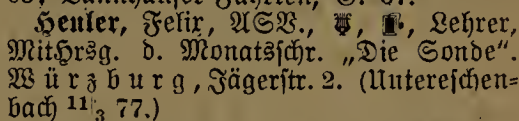 Heuler, Felix, ASV., Lehrer,
Mithrsg. d. Monatsschr. „Die Sonde“.
Würzburg, Jägerstr. 2. (Untereschen=
bach 11/3 77.)